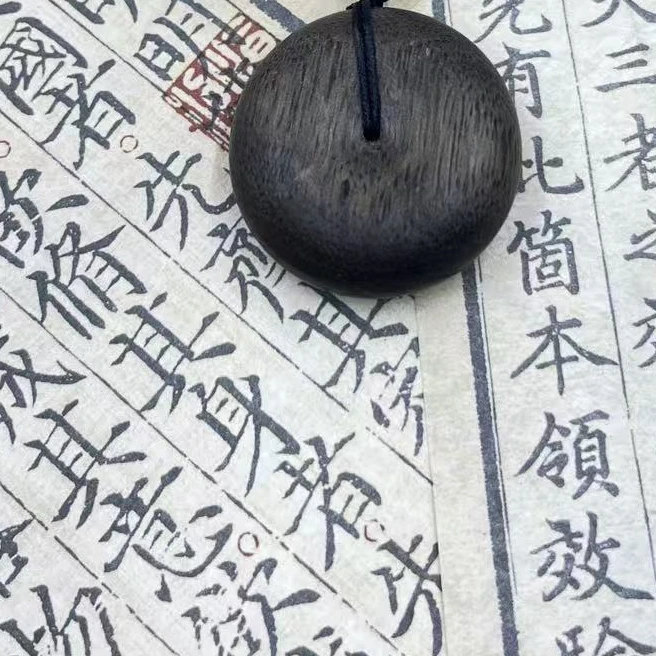 三者之
有此箇本領效
明
國者。先齊其家
欲修其身者。先
其意。欲